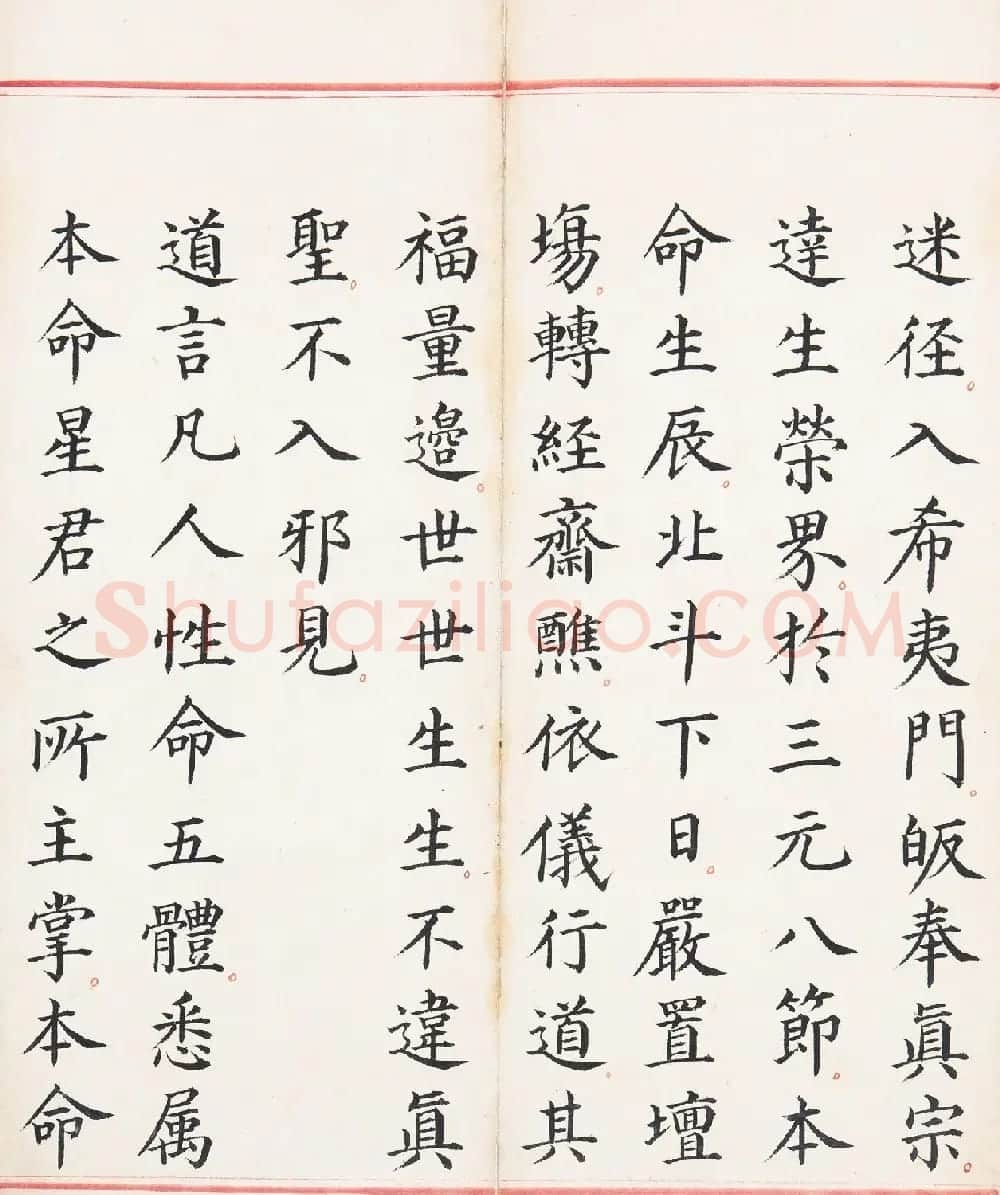 迷径。入希夷門。皈奉眞宗。
達生榮界。於三元八節。本
命生辰。北斗下日。嚴置壇
場。轉経齋醮。依儀行道。其
福量邉。世世生生。不違眞
聖。不入邪見。
道言凡人性命五體。悉属
本命星君之所主掌。本命
Shufaziliao.COM